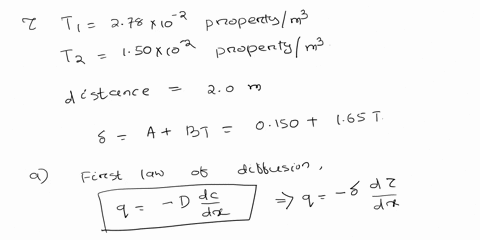 τ T₁ = 2.78 × 10⁻² property/m³
T₂ = 1.50 × 10⁻² property/m³
distance = 2.0 m
δ = A + BT = 0.150 + 1.65 T
a) First law of diffusion,
q = -D dc/dx ⇒ q = -δ dτ/dx